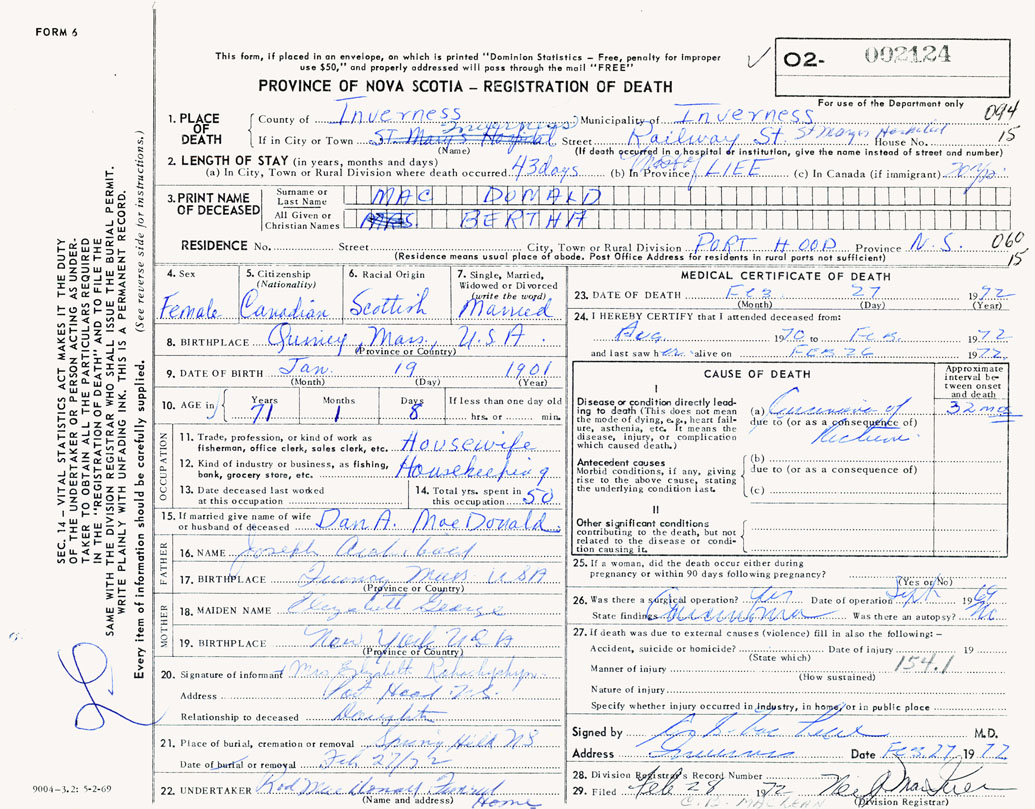 FORM 6
This form, if placed in an envelope, on which is printed "Dominion Statistics – Free, penalty for improper
use $50," and properly addressed will pass through the mail "FREE"
PROVINCE OF NOVA SCOTIA – REGISTRATION OF DEATH
O2- 002124
For use of the Department only
094
15
1. PLACE OF DEATH
County of Inverness Municipality of Inverness
If in City or Town St. Mary's Hospital Inverness Street Railway St St Marys Hospital House No.
(Name) (If death occurred in a hospital or institution, give the name instead of street and number)
2. LENGTH OF STAY (in years, months and days)
(a) In City, Town or Rural Division where death occurred 43 days (b) In Province LIFE (c) In Canada (if immigrant)
3. PRINT NAME OF DECEASED
Surname or Last Name MAC DONALD
All Given or Christian Names MRS. BERTHA
RESIDENCE No. Street City, Town or Rural Division PORT HOOD Province N.S.
(Residence means usual place of abode. Post Office Address for residents in rural parts not sufficient)
060
15
4. Sex Female
5. Citizenship (Nationality) Canadian
6. Racial Origin Scottish
7. Single, Married, Widowed or Divorced (write the word) Married
8. BIRTHPLACE Quincy, Mass, U.S.A.
(Province or Country)
9. DATE OF BIRTH Jan. 19 1901
(Month) (Day) (Year)
10. AGE in Years 71 Months 1 Days 8 If less than one day old hrs. or min.
OCCUPATION
11. Trade, profession, or kind of work as fisherman, office clerk, sales clerk, etc. Housewife
12. Kind of industry or business, as fishing, bank, grocery store, etc. Housekeeping
13. Date deceased last worked at this occupation
14. Total yrs. spent in this occupation 50
15. If married give name of wife or husband of deceased Dan A. MacDonald
FATHER
16. NAME Joseph Archibald
17. BIRTHPLACE Quincy Mass USA
(Province or Country)
MOTHER
18. MAIDEN NAME Elizabeth George
19. BIRTHPLACE New York USA
(Province or Country)
20. Signature of informant Mrs Elizabeth
Address Port Hood N.S.
Relationship to deceased Daughter
21. Place of burial, cremation or removal NS
Date of burial or removal Feb 27/72
22. UNDERTAKER Rod MacDonald Funeral Home
(Name and address)
MEDICAL CERTIFICATE OF DEATH
23. DATE OF DEATH FEB 27 1972
(Month) (Day) (Year)
24. I HEREBY CERTIFY that I attended deceased from:
Aug 1970 to Feb. 1972
and last saw her alive on FEB 26 1972
CAUSE OF DEATH
Approximate interval between onset and death
I
Disease or condition directly leading to death (This does not mean the mode of dying, e.g., heart failure, asthenia, etc. It means the disease, injury, or complication which caused death.)
(a) Carcinoma of 32 mos
due to (or as a consequence of)
Rectum
Antecedent causes
Morbid conditions, if any, giving rise to the above cause, stating the underlying condition last.
(b)
due to (or as a consequence of)
(c)
II
Other significant conditions contributing to the death, but not related to the disease or condition causing it.
25. If a woman, did the death occur either during pregnancy or within 90 days following pregnancy?
(Yes or No)
26. Was there a surgical operation? Yes Date of operation Sept 1969
State findings Carcinoma Was there an autopsy? No
27. If death was due to external causes (violence) fill in also the following: –
Accident, suicide or homicide? Date of injury 19
(State which)
154.1
Manner of injury
(How sustained)
Nature of injury
Specify whether injury occurred in industry, in home, or in public place
Signed by M.D.
Address Inverness Date FEB 27, 1972
28. Division Registrar's Record Number
29. Filed Feb 28 1972
(Division Registrar)
C. B. MACLEAN
SEC. 14 – VITAL STATISTICS ACT MAKES IT THE DUTY
OF THE UNDERTAKER OR PERSON ACTING AS UNDERTAKER
TO OBTAIN ALL THE PARTICULARS REQUIRED
IN THE "REGISTRATION OF DEATH" AND TO FILE THE
SAME WITH THE DIVISION REGISTRAR WHO SHALL ISSUE THE BURIAL PERMIT.
WRITE PLAINLY WITH UNFADING INK. THIS IS A PERMANENT RECORD.
Every item of information should be carefully supplied. (See reverse side for instructions.)
9004-3.2: 5-2-69